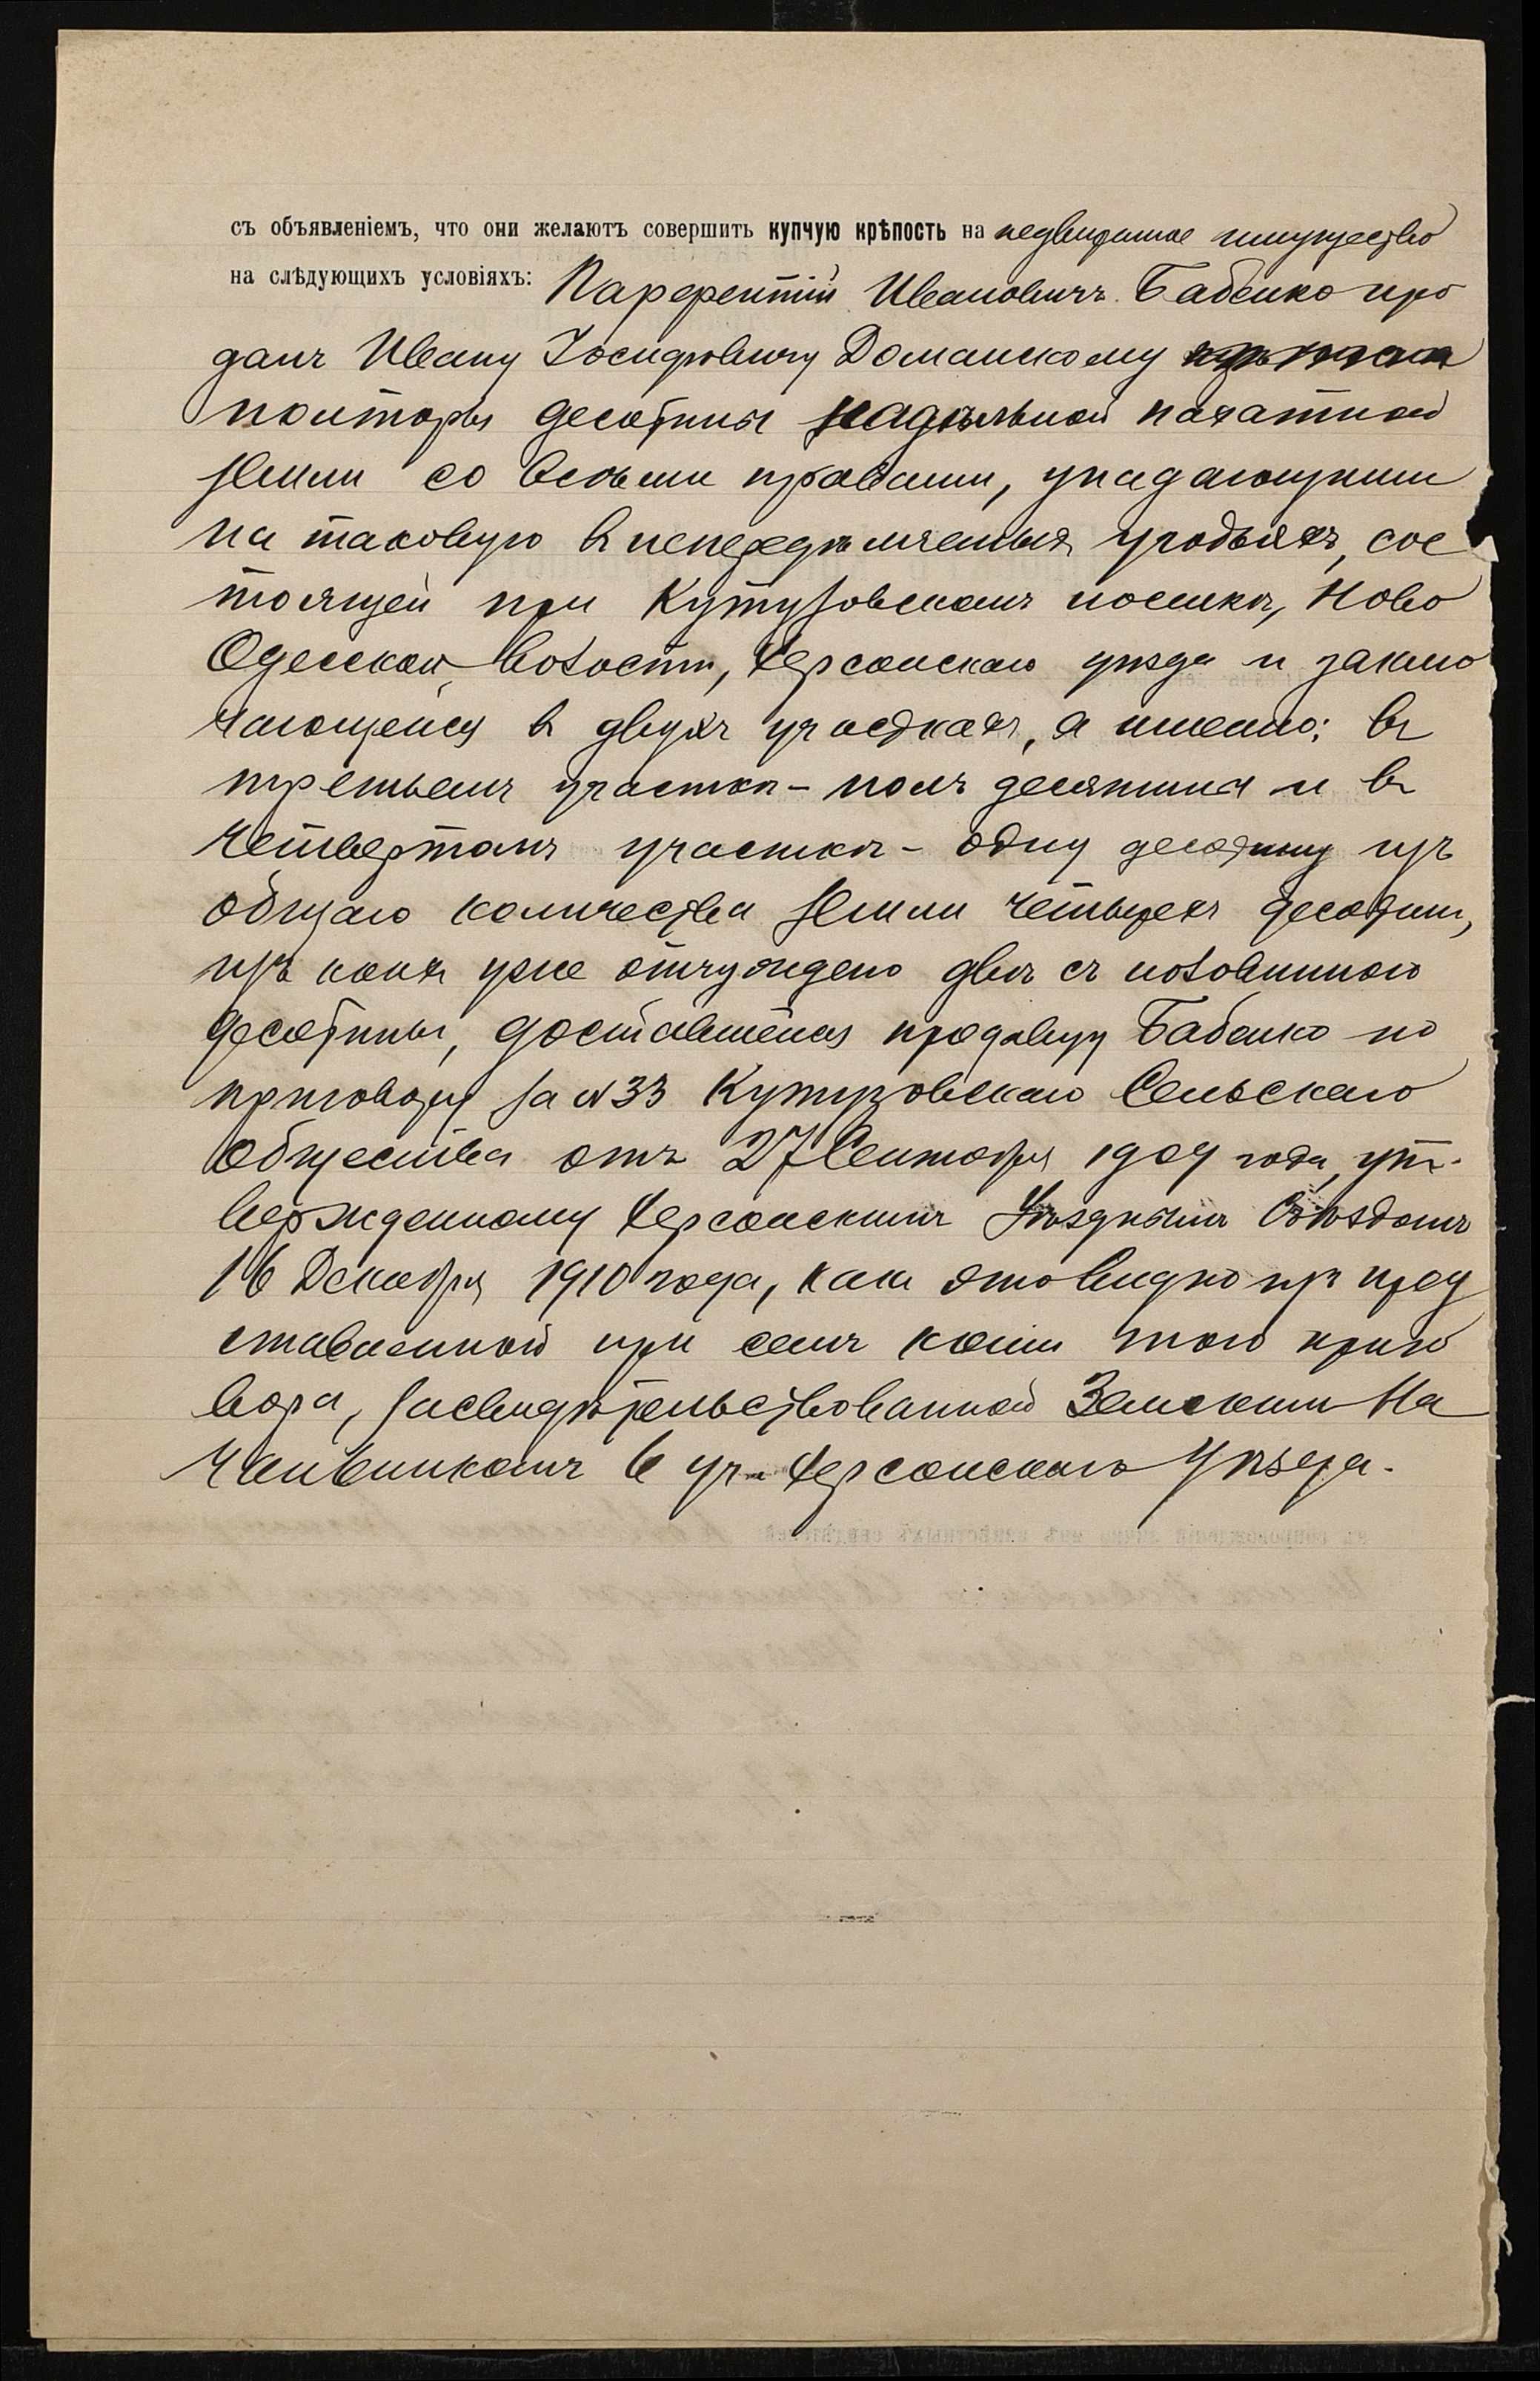 съ объявленіемъ, что они желаютъ совершить купчую крѣпость на недвижимое имущество
на слѣдующихъ условіяхъ: Парфентій Ивановичъ Бабенко про
далъ Ивану Іосифовичу Доманскому
полторы десятины надѣльной пахатной
земли со всѣми правами, упадающими
на таковую въ непередѣляемыхъ угодьяхъ, сос
тоящей при Кутузовскомъ поселкѣ, Ново
Одесской волости, Херсонскаго уѣзда и заклю
чающейся въ двухъ участкахъ, а именно: въ
третьемъ участкѣ - полъ десятины и въ
четвертомъ участкѣ - одну десятину изъ
общаго количества земли четырехъ десятин,
изъ коихъ уже отчуждено двѣ съ половиною
десятины, доставшейся продавцу Бабенко по
приговору за № 33 Кутузовскаго Сельскаго
общества отъ 27 Сентября 1909 года, ут-
вержденному Херсонскимъ Уѣзднымъ Съѣздомъ
16 Декабря 1910 года, какъ это видно изъ пред
ставленной при семъ копіи того приго
вора, засвидѣтельствованной Земскимъ На
чальникомъ 6 уч. Херсонскаго Уѣзда.